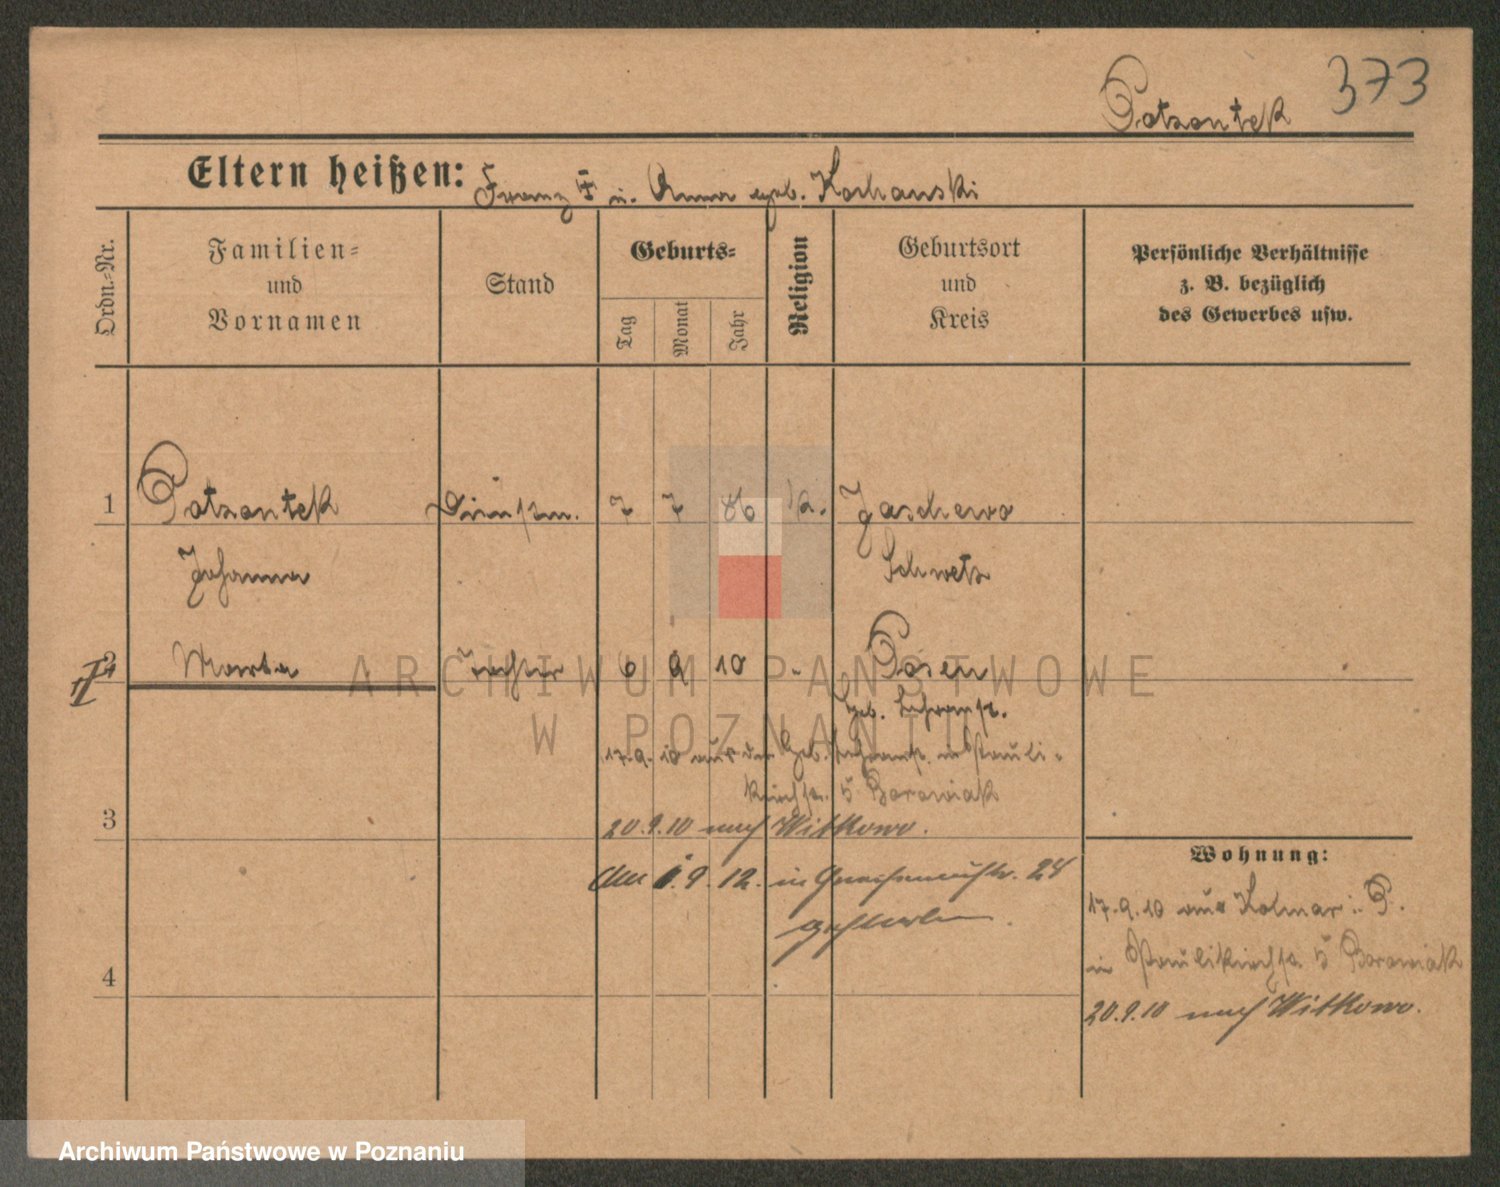 373
Patzontek
Eltern heißen: Franz † u. Anna geb. Kochanski
Ordn.-Nr.
Familien- und Vornamen
Stand
Geburts-
Tag
Monat
Jahr
Religion
Geburtsort und Kreis
Persönliche Verhältnisse z. B. bezüglich des Gewerbes usw.
1 Patzontek 7 7 86 k. Jaschewo
Johanna Schwetz
2 Marta Tochter 6 9 10 " Posen
Geb.
17.9.10 aus der Geb. in Pauli-
kirchstr. 5 Borowiak
3
20.9.10 nach Witkowo.
Am 1.9.12. in Gneisenaustr. 24
gestorben.
4
Wohnung:
17.9.10 aus Kolmar i. P.
in Paulikirchstr. 5 Borowiak
20.9.10 nach Witkowo.
ARCHIWUM PAŃSTWOWE
W POZNANIU
Archiwum Państwowe w Poznaniu